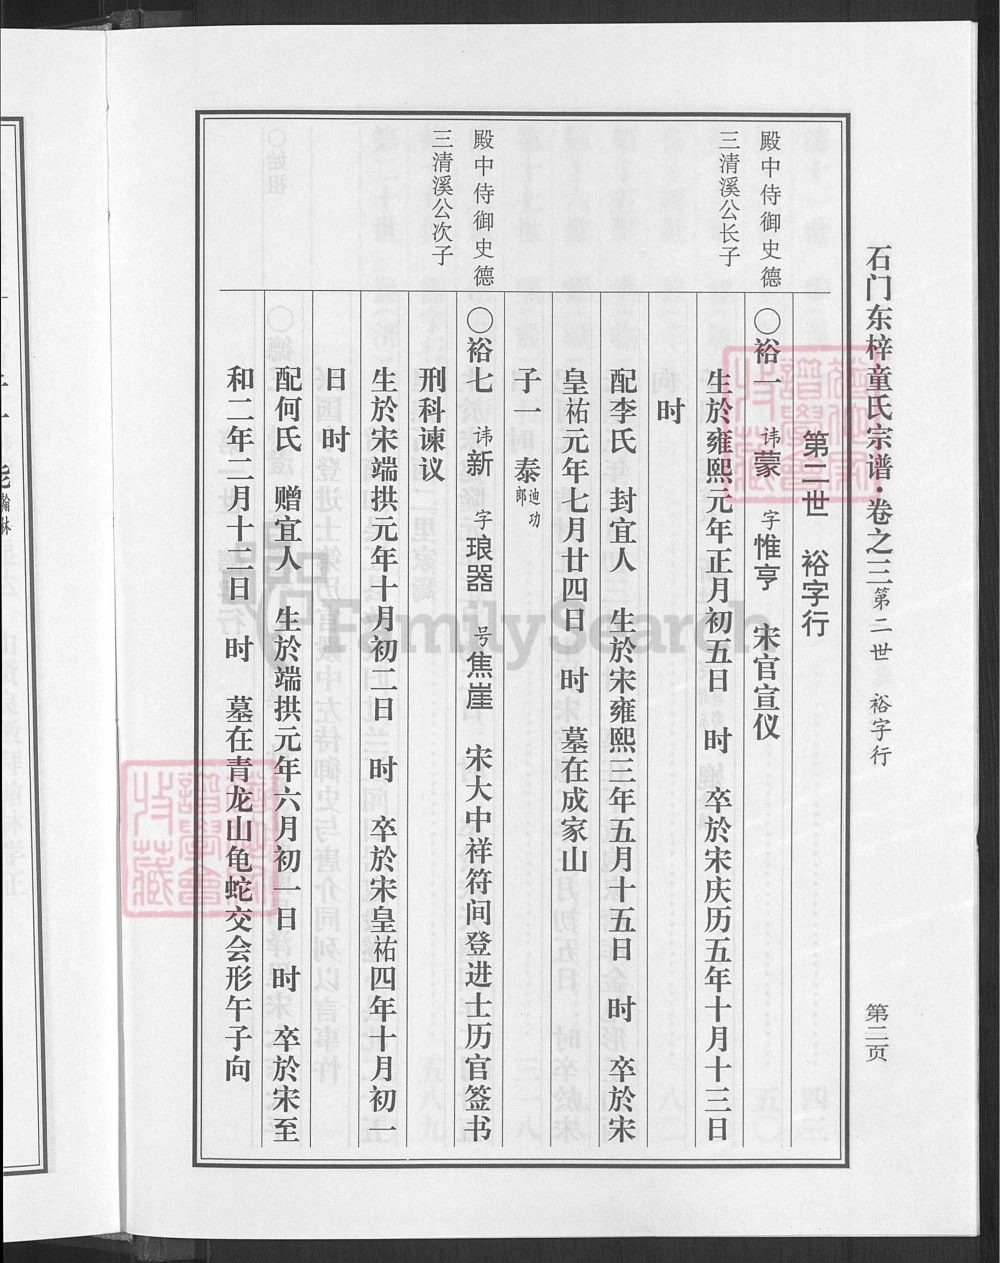 石门东梓童氏宗谱·卷之三 第二世 裕字行 第二页
第二世 裕字行
殿中侍御史德
三清溪公长子
〇裕一 讳蒙 字惟亨 宋官宣仪
生於雍熙元年正月初五日 时 卒於宋庆历五年十月十三日
时
配李氏 封宜人 生於宋雍熙三年五月十五日 时 卒於宋
皇祐元年七月廿四日 时 墓在成家山
子一 泰迪功郎
殿中侍御史德
三清溪公次子
〇裕七 讳新 字琅器 号焦崖 宋大中祥符间登进士历官签书
刑科谏议
生於宋端拱元年十月初二日 时 卒於宋皇祐四年十月初一
日 时
配何氏 赠宜人 生於端拱元年六月初一日 时 卒於宋至
和二年二月十二日 时 墓在青龙山龟蛇交会形午子向
FamilySearch